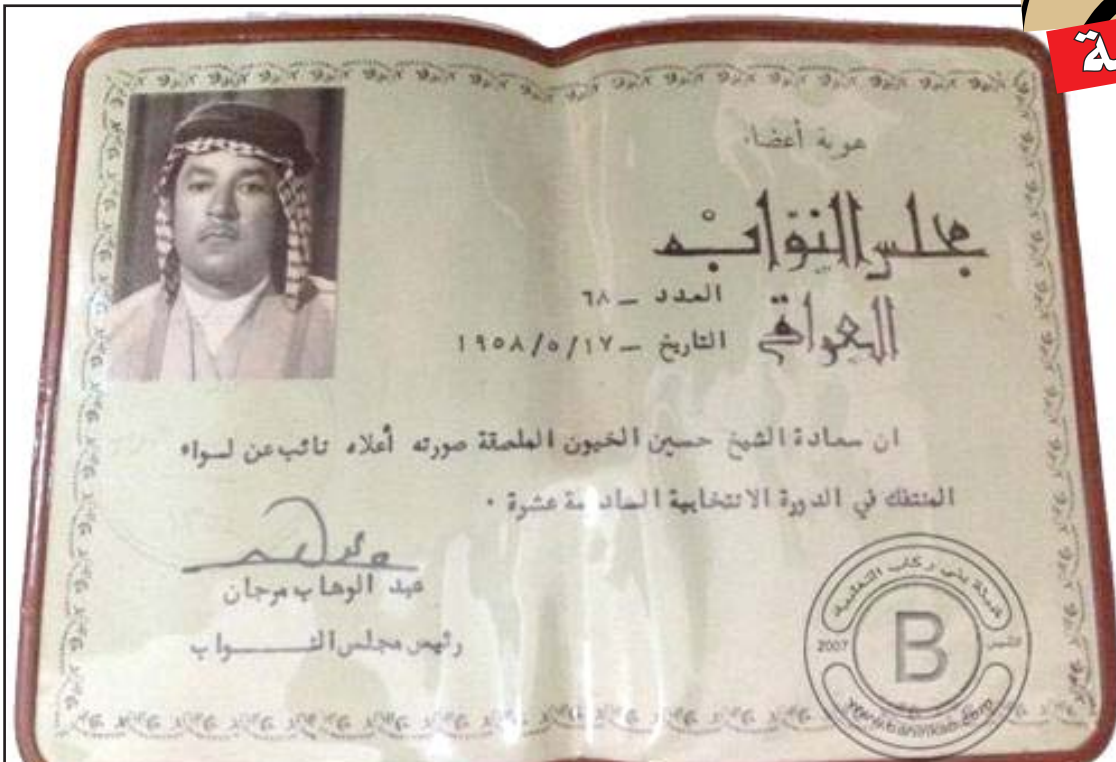 هوية أعضاء
مجلس النواب
العراقي
العدد – ٦٨
التاريخ – ١٩٥٨/٥/١٧
ان سعادة الشيخ حسين الخيون الملصقة صورته أعلاه نائب عن لواء
المنتفك في الدورة الانتخابية السادسة عشرة ٠
عبد الوهاب مرجان
رئيس مجلس النواب
قبيلة بني ركاب
B
2007
www.banirikab.com